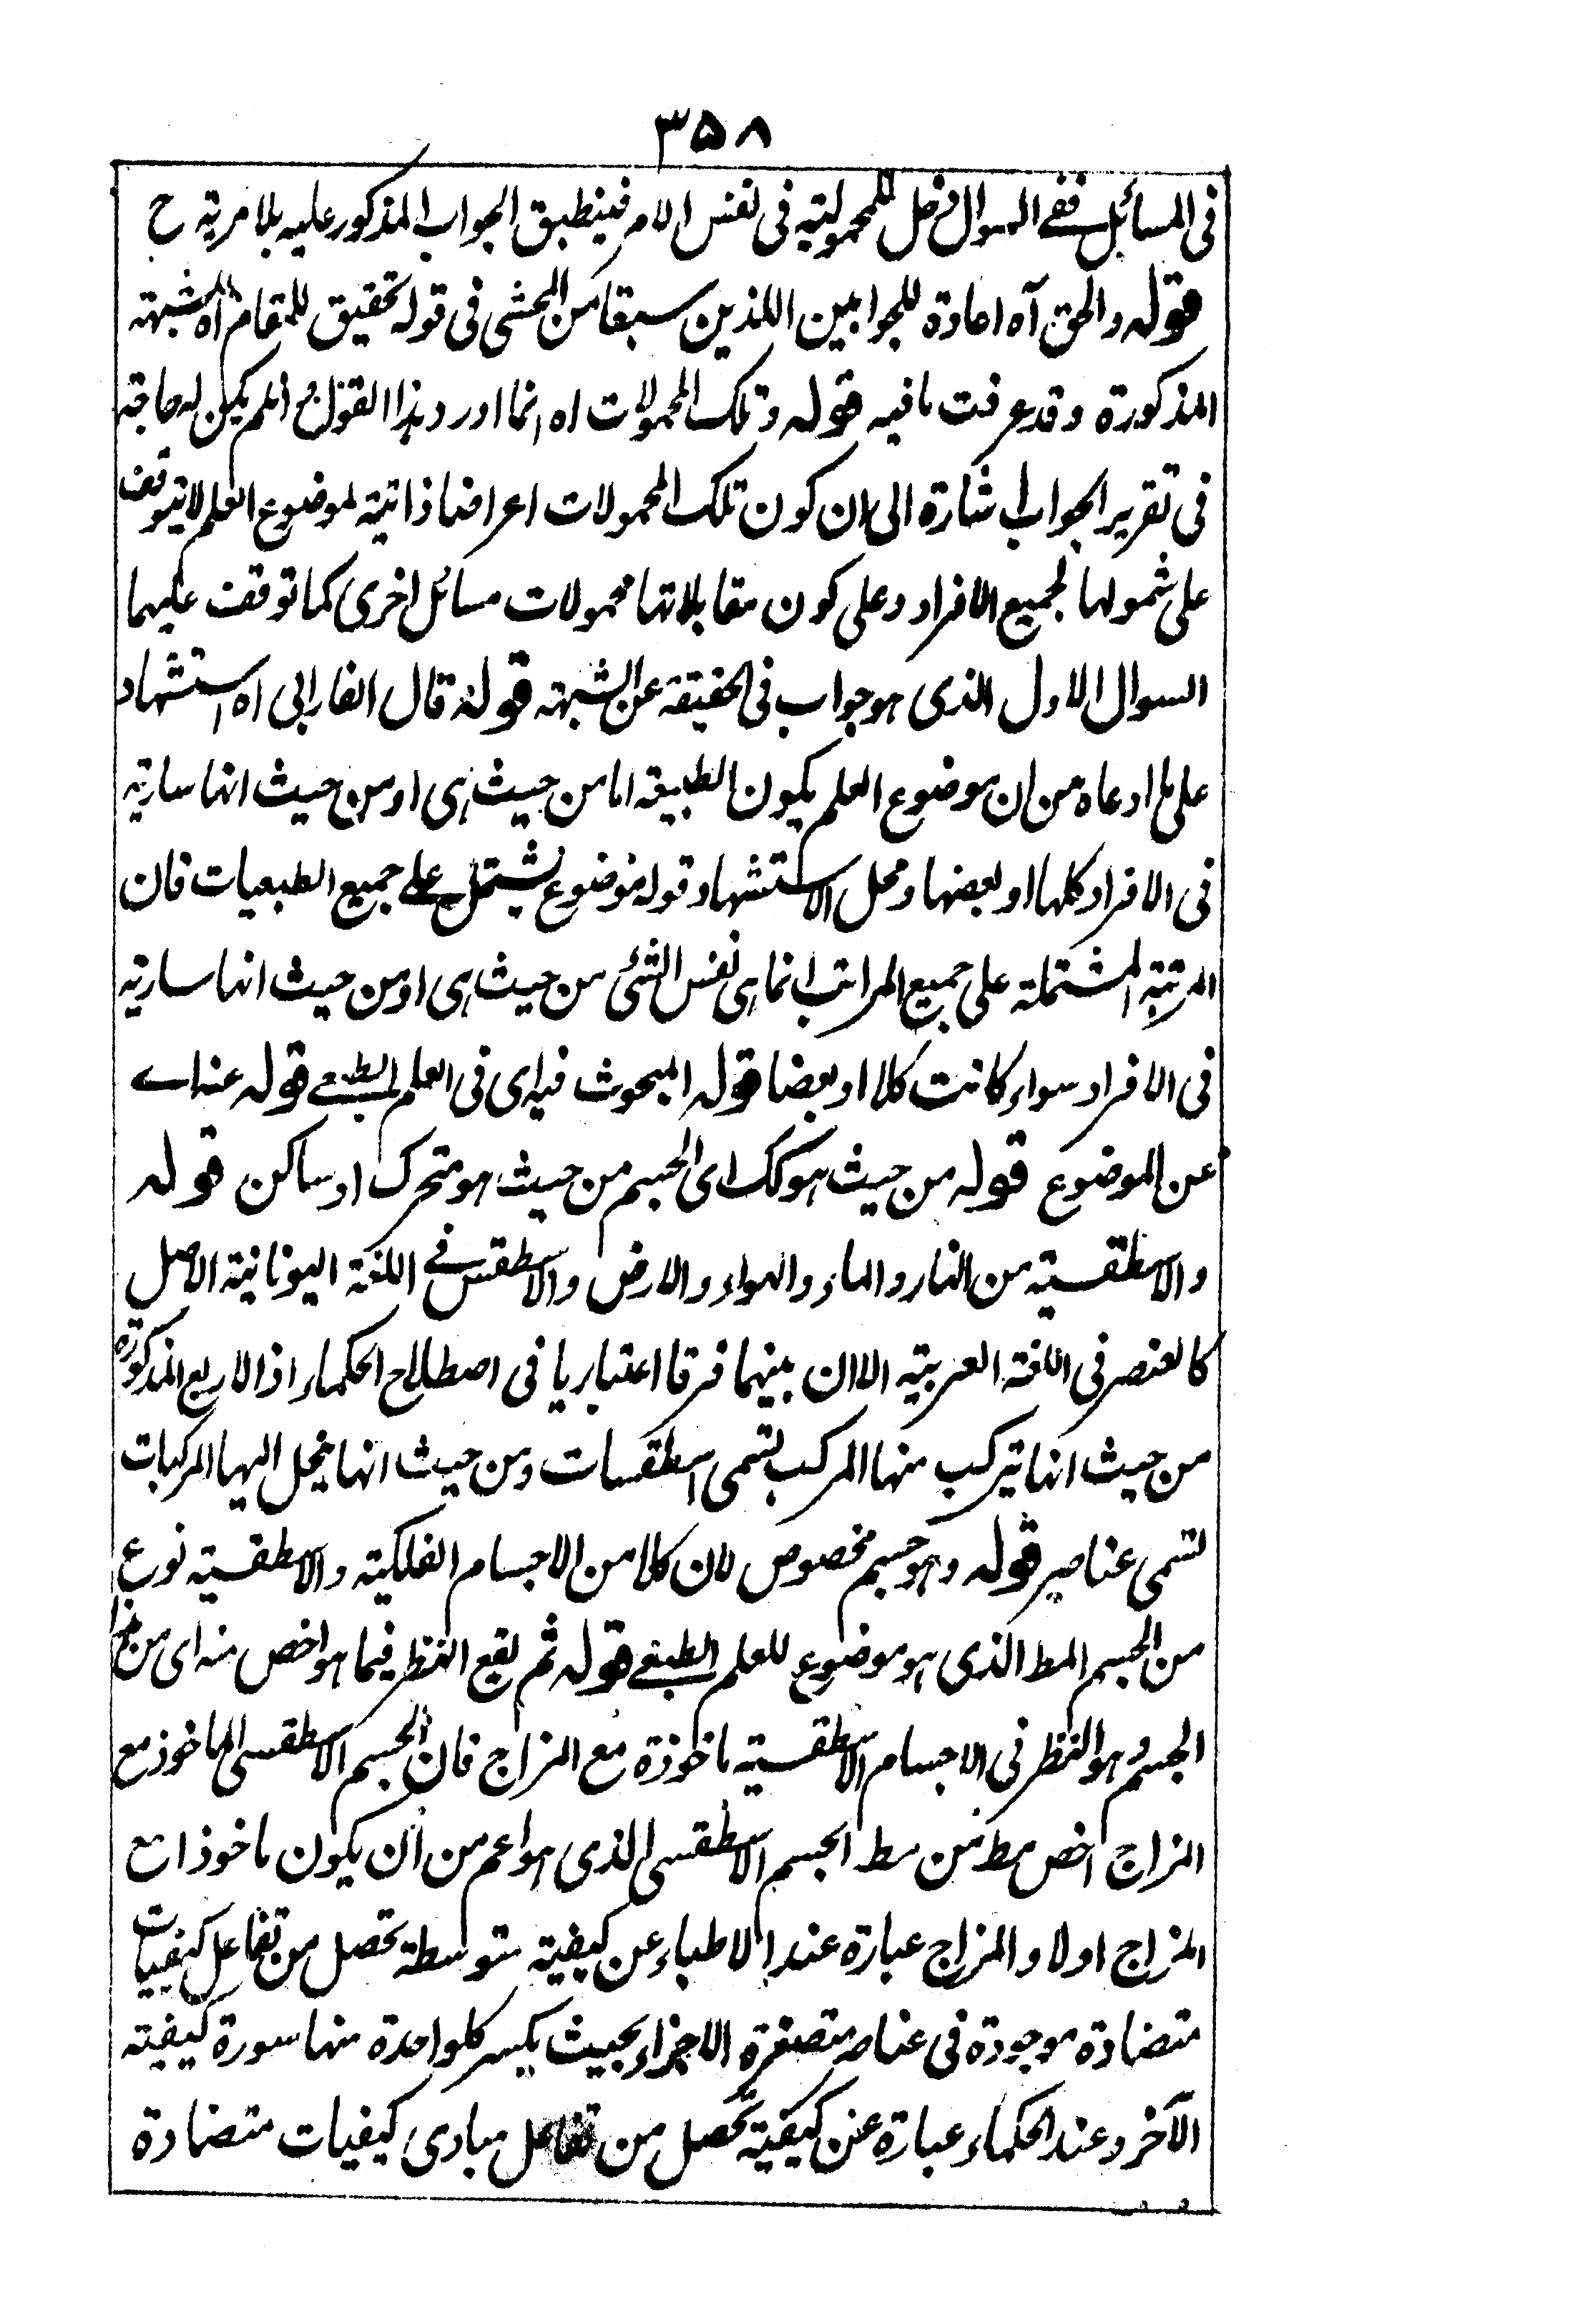 ۳۵۸
فى المسائل ففى السوال دخل للمحمولية فى نفس الامر فينطبق الجواب المذكور عليه بلا مرية ح
قوله والحق آه اعادة للجوابين اللذين سبقا من المحشى فى قوله تحقيق للمقام اه الشبهة
المذكورة وقد عرفت ما فيه قوله وتلك المحمولات اه انما اورد هذا القول مع انه لم يكن له حاجة
فى تقرير الجواب اشارة الى ان كون تلك المحمولات اعراضا ذاتية لموضوع العلم لا يتوقف
على شمولها لجميع الافراد وعلى كون مقابلاتها محمولات مسائل اخرى كما توقف عليهما
السوال الاول الذى هو جواب فى الحقيقة عن الشبهة قوله قال الفارابى اه استشهاد
على ما ادعاه من ان موضوع العلم يكون الطبيعة اما من حيث هى او من حيث انها سارية
فى الافراد كلها او بعضها ومحل الاستشهاد قوله موضوع يشتمل على جميع الطبعيات فان
المرتبة المشتملة على جميع المراتب انما هى نفس الشئ من حيث هى او من حيث انها سارية
فى الافراد سواء كانت كلا او بعضا قوله المبحوث فيه اى فى العلم الطبعى قوله عنه اے
عن الموضوع قوله من حيث هو كك اى الجسم من حيث هو متحرك او ساكن قوله
والاسطقسية من النار والماء والهواء والارض والاسطقس فى اللغة اليونانية الاصل
كالعنصر فى اللغة العربية الا ان بينهما فرقا اعتباريا فى اصطلاح الحكماء اذ الاربع المذكورة
من حيث انها تتركب منها المركب تسمى اسطقسات ومن حيث انها ينحل اليها المركبات
تسمى عناصر قوله وهو جسم مخصوص لان كلا من الاجسام الفلكية والاسطقسية نوع
من الجسم المط الذى هو موضوع للعلم الطبعى قوله ثم يقع النظر فيما هو اخص منه اى من هذا
الجسم وهو النظر فى الاجسام الاسطقسية ماخوذة مع المزاج فان الجسم الاسطقسى الماخوذ مع
المزاج اخص مط من مط الجسم الاسطقسى الذى هو اعم من ان يكون ماخوذا مع
المزاج اولا والمزاج عبارة عند الاطباء عن كيفية متوسطة تحصل من تفاعل كيفيات
متضادة موجودة فى عناصر متصغرة الاجزاء بحيث يكسر كلواحدة منها سورة كيفية
الآخر وعند الحكماء عبارة عن كيفية تحصل من تفاعل مبادى كيفيات متضادة